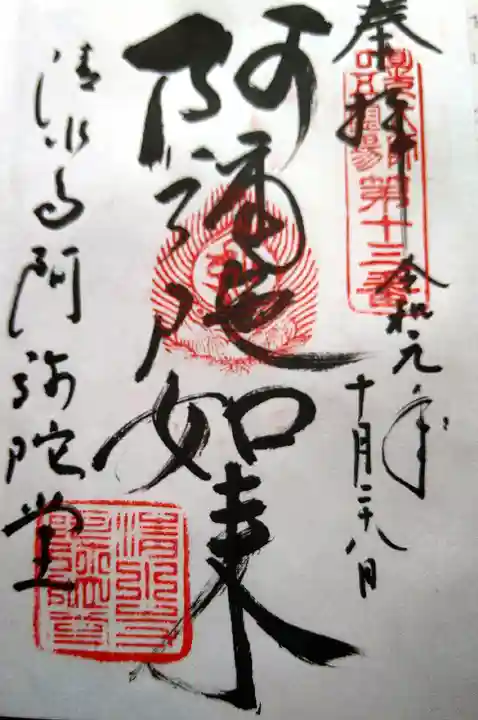 奉拝
第十三番
令和元年
十月二十八日
阿彌陀如来
清水寺阿弥陀堂